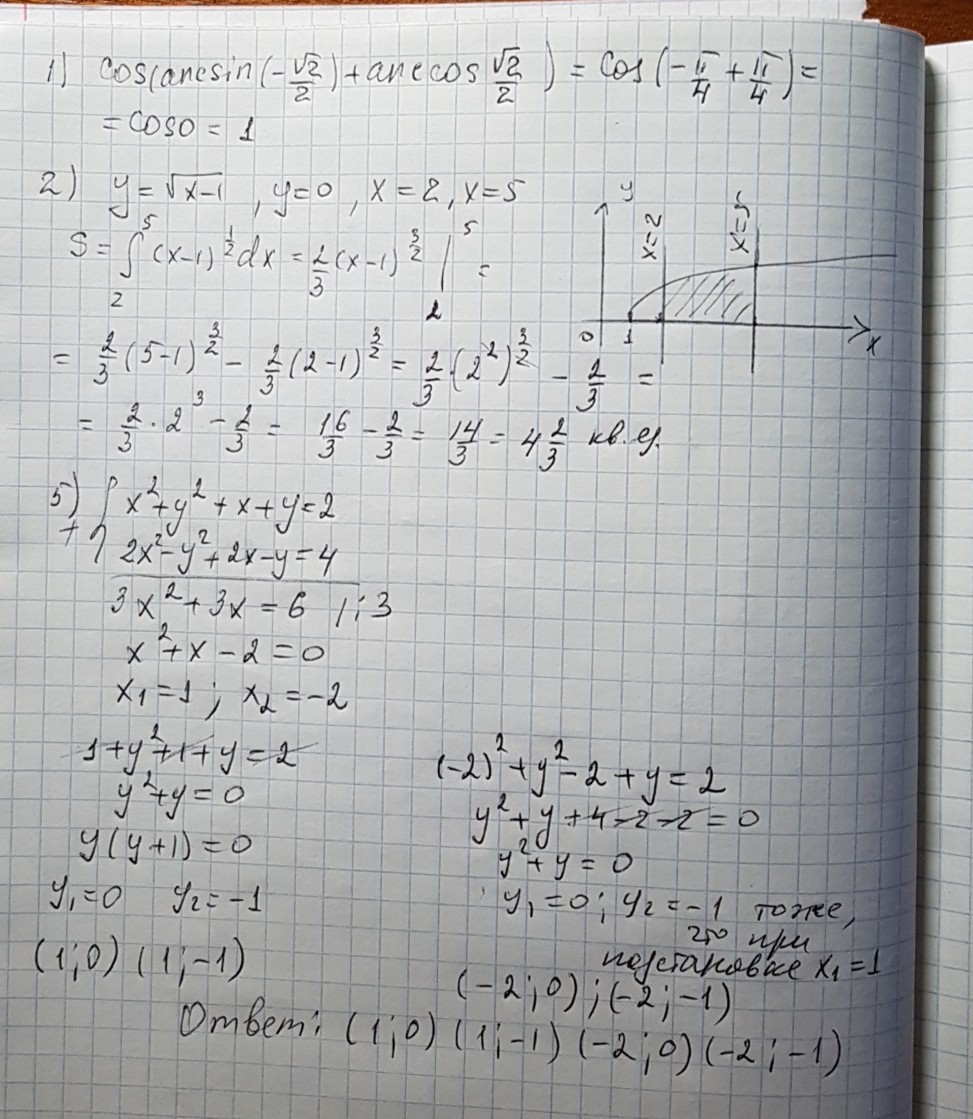 1) cos(arcsin(-√2/2)+arccos √2/2) = cos(-π/4+π/4)=
= cos0 = 1
2) y=√x-1, y=0, x=2, x=5
S = ∫₂⁵ (x-1)^(1/2) dx = 2/3 (x-1)^(3/2) |₂⁵ =
y x=2 x=5
0 1 x
= 2/3 (5-1)^(3/2) - 2/3 (2-1)^(3/2) = 2/3 · (2²)^(3/2) - 2/3 =
= 2/3 · 2³ - 2/3 = 16/3 - 2/3 = 14/3 = 4 2/3 кв. ед.
5) { x²+y²+x+y=2
+ { 2x²-y²+2x-y=4
3x²+3x=6 |:3
x²+x-2=0
x₁=1; x₂=-2
1+y²+1+y=2
y²+y=0
y(y+1)=0
y₁=0 y₂=-1
(1;0) (1;-1)
(-2)²+y²-2+y=2
y²+y+4-2-2=0
y²+y=0
y₁=0; y₂=-1 тоже,
что при
подстановке x₁=1
(-2;0); (-2;-1)
Ответ: (1;0) (1;-1) (-2;0) (-2;-1)